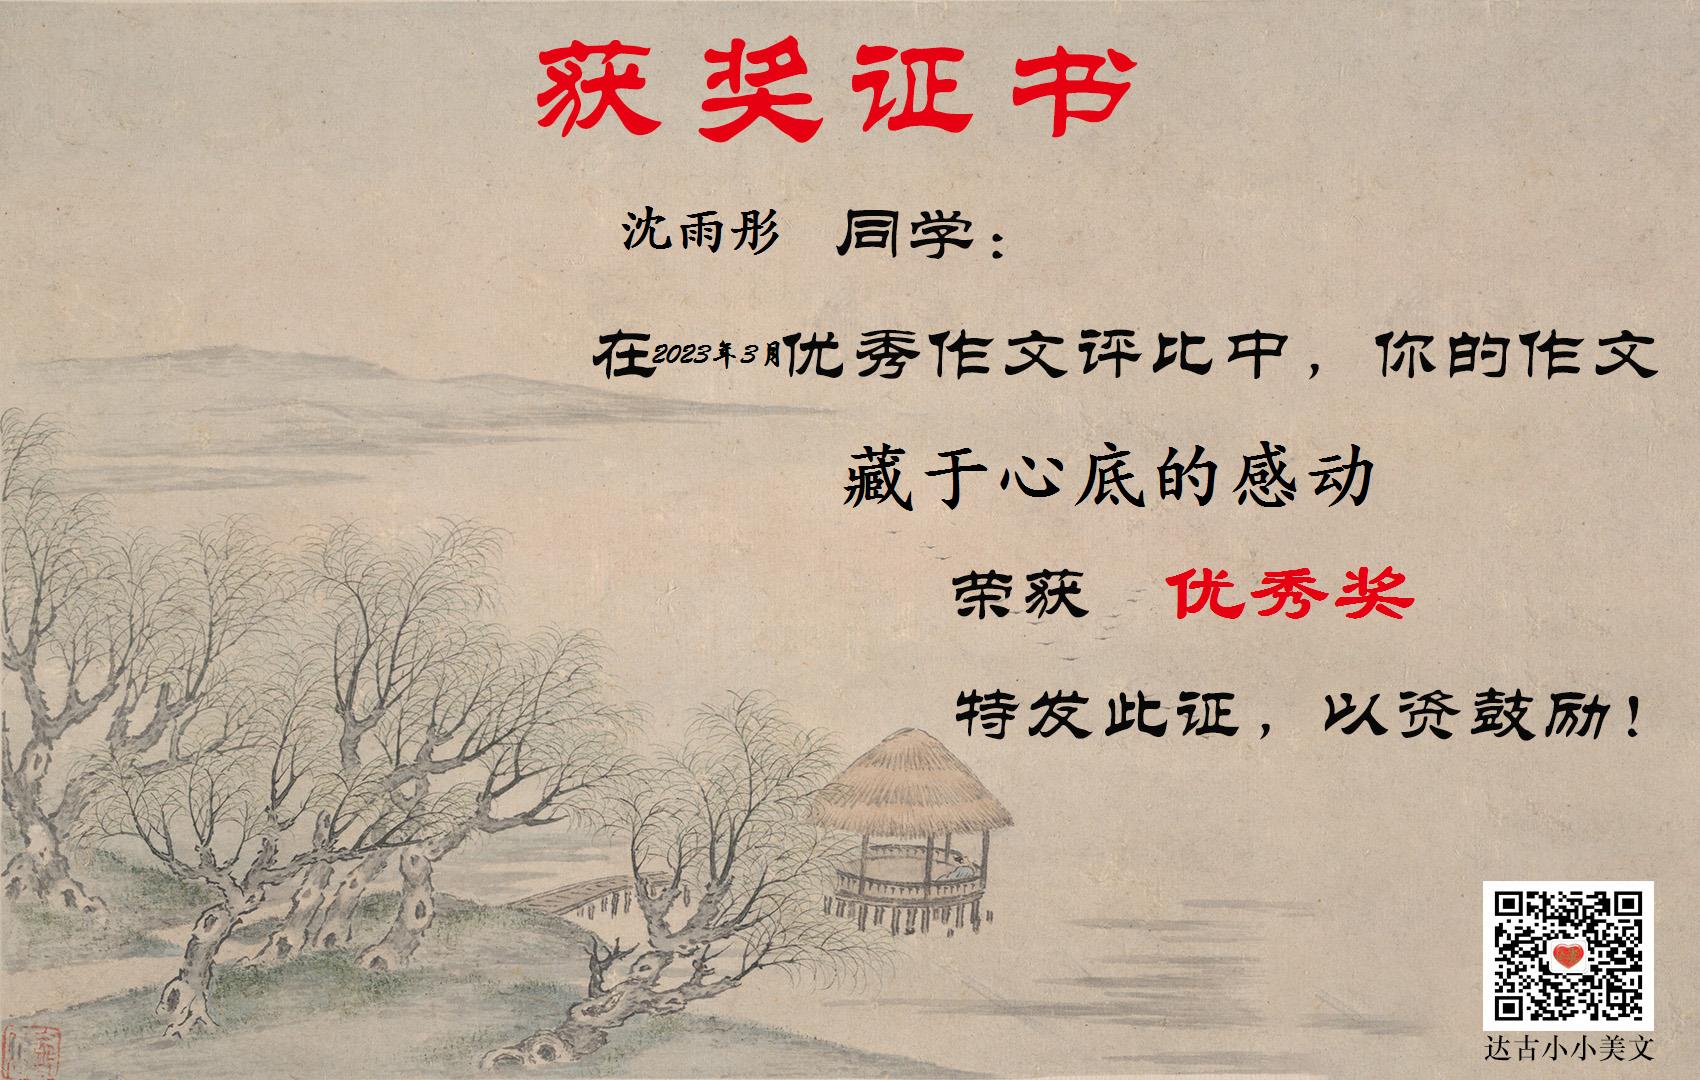 获奖证书
沈雨彤 同学：
在2023年3月优秀作文评比中，你的作文
藏于心底的感动
荣获 优秀奖
特发此证，以资鼓励！
达古小小美文